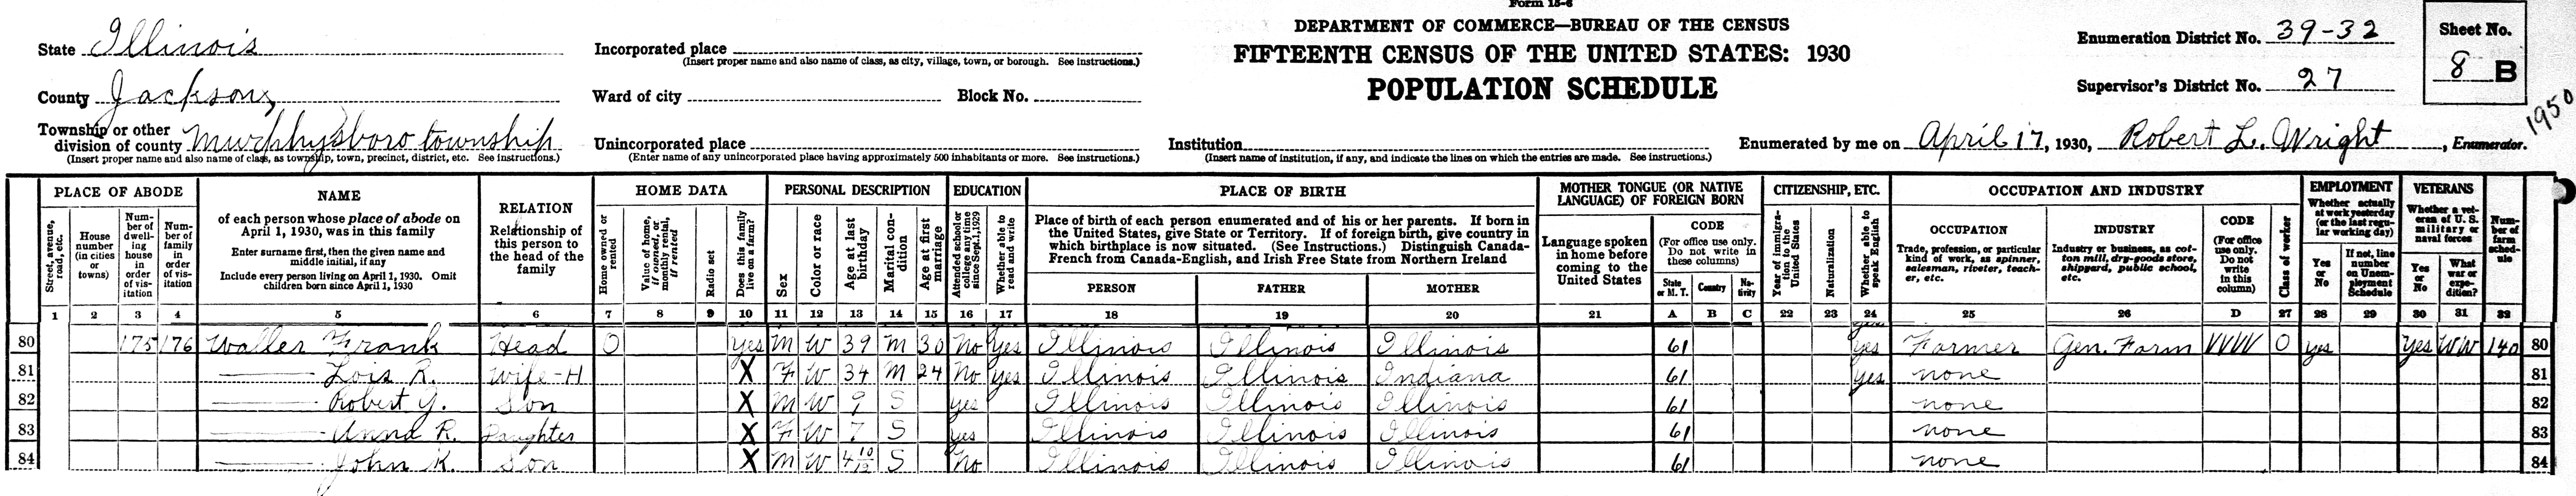 Form 15-6
DEPARTMENT OF COMMERCE—BUREAU OF THE CENSUS
FIFTEENTH CENSUS OF THE UNITED STATES: 1930
POPULATION SCHEDULE
State Illinois
County Jackson
Township or other division of county Murphysboro township
(Insert proper name and also name of class, as township, town, precinct, district, etc. See instructions.)
Incorporated place
(Insert proper name and also name of class, as city, village, town, or borough. See instructions.)
Ward of city Block No.
Unincorporated place
(Enter name of any unincorporated place having approximately 500 inhabitants or more. See instructions.)
Institution
(Insert name of institution, if any, and indicate the lines on which the entries are made. See instructions.)
Enumeration District No. 39-32
Supervisor's District No. 27
Sheet No.
8 B
1950
Enumerated by me on April 17, 1930, Robert L. Wright, Enumerator.
PLACE OF ABODE
Street, avenue, road, etc.
House number (in cities or towns)
Number of dwelling house in order of visitation
Number of family in order of visitation
NAME
of each person whose place of abode on April 1, 1930, was in this family
Enter surname first, then the given name and middle initial, if any
Include every person living on April 1, 1930. Omit children born since April 1, 1930
RELATION
Relationship of this person to the head of the family
HOME DATA
Home owned or rented
Value of home, if owned, or monthly rental, if rented
Radio set
Does this family live on a farm?
PERSONAL DESCRIPTION
Sex
Color or race
Age at last birthday
Marital condition
Age at first marriage
EDUCATION
Attended school or college any time since Sept. 1, 1929
Whether able to read and write
PLACE OF BIRTH
Place of birth of each person enumerated and of his or her parents. If born in the United States, give State or Territory. If of foreign birth, give country in which birthplace is now situated. (See Instructions.) Distinguish Canada-French from Canada-English, and Irish Free State from Northern Ireland
PERSON FATHER MOTHER
MOTHER TONGUE (OR NATIVE LANGUAGE) OF FOREIGN BORN
Language spoken in home before coming to the United States
CODE
(For office use only. Do not write in these columns)
State or M. T. Country Nativity
CITIZENSHIP, ETC.
Year of immigration to the United States
Naturalization
Whether able to speak English
OCCUPATION AND INDUSTRY
OCCUPATION
Trade, profession, or particular kind of work, as spinner, salesman, riveter, teacher, etc.
INDUSTRY
Industry or business, as cotton mill, dry-goods store, shipyard, public school, etc.
CODE
(For office use only. Do not write in this column)
Class of worker
EMPLOYMENT
Whether actually at work yesterday (or the last regular working day)
Yes or No
If not, line number on Unemployment Schedule
VETERANS
Whether a veteran of U. S. military or naval forces
Yes or No
What war or expedition?
Number of farm schedule
1 2 3 4 5 6 7 8 9 10 11 12 13 14 15 16 17 18 19 20 21 A B C 22 23 24 25 26 D 27 28 29 30 31 32
80 175 176 Waller Frank Head O Yes M W 39 M 30 No Yes Illinois Illinois Illinois 61 yes Farmer Gen. Farm VVVV O yes Yes WW 140 80
81 Lois R. Wife-H X F W 34 M 24 No Yes Illinois Illinois Indiana 61 yes none 81
82 Robert G. Son X M W 9 S yes Illinois Illinois Illinois 61 none 82
83 Anna R. Daughter X F W 7 S yes Illinois Illinois Illinois 61 none 83
84 John K. Son X M W 4 10/12 S No Illinois Illinois Illinois 61 none 84